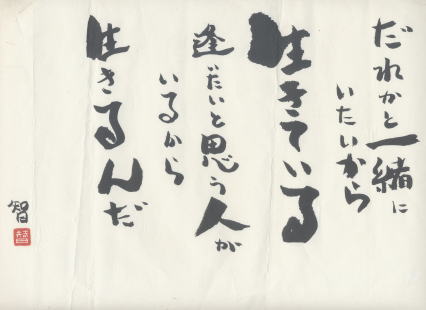 だれかと一緒に
いたいから
生きている
逢いたいと思う人が
いるから
生きるんだ
智